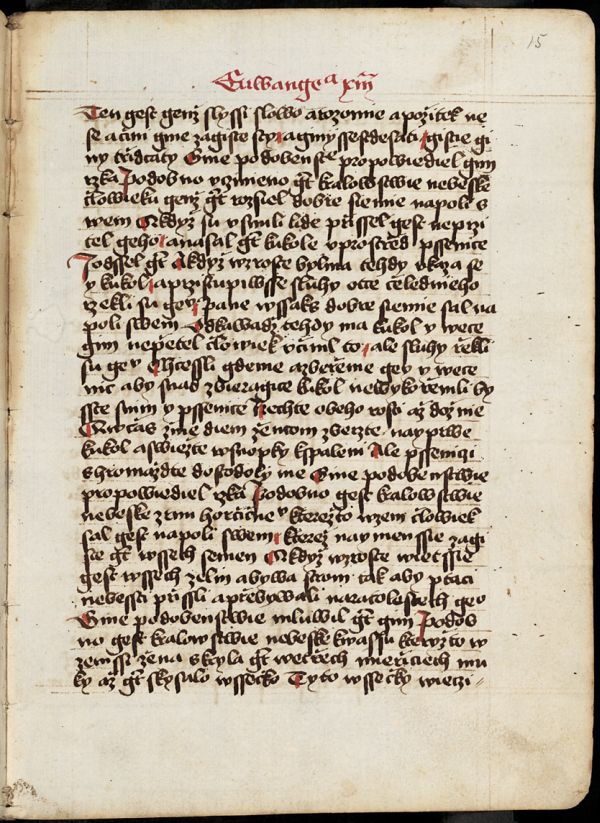 15
Euwange a xiii
Ten gest genz slyssi slowo a rozomie a pozitek ne
se a czini gine zagiste sty a giny ssesdesati gistie gi
ny trzidcaty Gine podobenstwie propowiediel gim
rzka Podobno vczineno gt kralowstwie nebeske
czlowieku genz gt rozsiel dobre siemie na poli s
wem A kdyz su vsnuli lide przissel gest neprzi
tel geho a nasal gt kukole vprostrzed pssenice
I odssel gt A kdyz wzroste bylina tehdy vkaza se
y kukol a przistupiwsse sluhy otce czeledineho
rzekli su gey Pane wssaks dobre siemie sal na
poli swem Odkawadz tehdy ma kukol y wece
gim neprzetel czlowiek vczinil to ale sluhy rzekli
su gey Chcessli gdeme a zberzeme gey y wece
nic aby snad zbieragice kukol newykorzenili by
sste snim y pssenice Nechte obeho rosti az do znie
A w czas znie diem zencom zberzte nayprwe
kukol a swiezte w snopky k spaleni Ale pssenici
shromazdte do stodoly me Gine podobenstwie
propowiediel rzka Podobno gest kralowstwie
nebeske zrnu horczicne kterezto wzem czlowiek
sal gest na poli swem kterez naymenssie zagi
ste gt wssech semen A kdyz wzroste wietssie
gest wssech zelin a bywa strom tak aby ptaci
nebessti przissli a przebywali na ratolestech geo
Gine podobenstwie mluwil gt gim Podob
no gest kralowstwie nebeske kwassu kteryzto w
zemssi zena skryla gt we trzech mierziciech mu
ky az gt skysalo wssecko Tyto wssecky wieczi